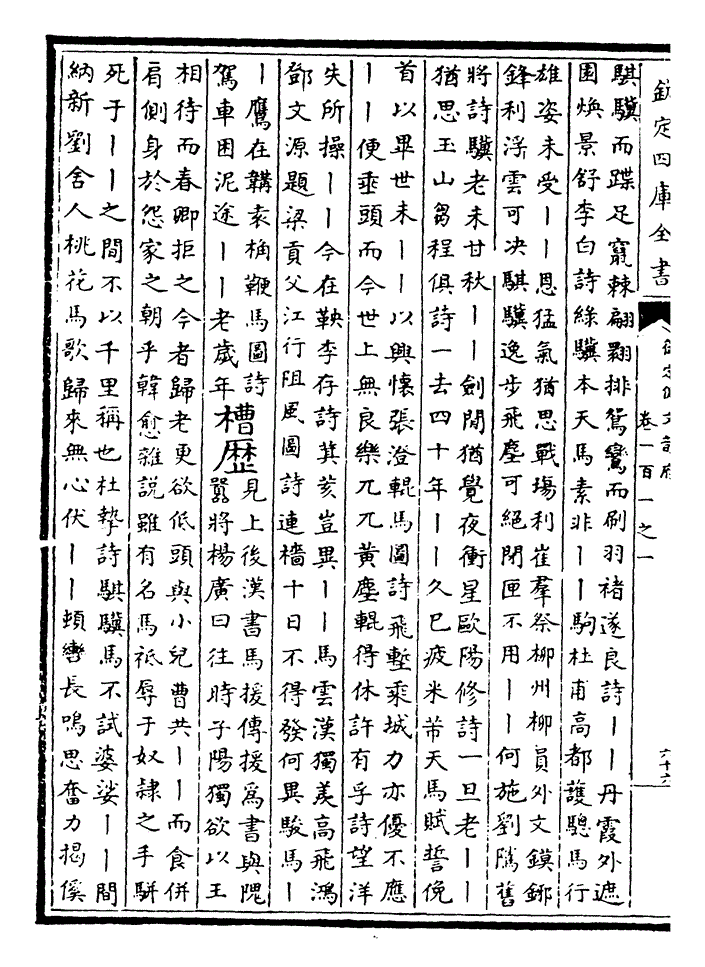 欽定四庫全書
御定佩文韻府
卷一百一之一
六十六
騏驥而蹀足竄棘翩翾排鴛鸞而刷羽褚遂良詩｜｜丹霞外遮
園煥景舒李白詩綠驥本天馬素非｜｜駒杜甫高都護驄馬行
雄姿未受｜｜恩猛氣猶思戰塲利崔羣祭柳州柳員外文鏌鋣
鋒利浮雲可决騏驥逸步飛塵可絕閉匣不用｜｜何施劉隲舊
將詩驥老未甘秋｜｜劍閒猶覺夜衝星歐陽修詩一旦老｜｜
猶思玉山芻程俱詩一去四十年｜｜久已疲米芾天馬賦誓俛
首以畢世未｜｜以興懷張澄輥馬圖詩飛塹乘城力亦優不應
｜｜便垂頭而今世上無良樂兀兀黄塵輥得休許有孚詩望洋
失所操｜｜今在鞅李存詩萁荄豈異｜｜馬雲漢獨羨高飛鴻
鄧文源題梁貢父江行阻風圖詩連檣十日不得發何異駿馬｜
｜鷹在韝袁桷鞭馬圖詩
駕車困泥途｜｜老歲年
槽歷
見上後漢書馬援傳援爲書與隗
囂將楊廣曰往時子陽獨欲以王
相待而春卿拒之今者歸老更欲低頭與小兒曹共｜｜而食併
肩側身於怨家之朝乎韓愈雜說雖有名馬祗辱于奴隷之手駢
死于｜｜之間不以千里稱也杜摯詩騏驥馬不試婆娑｜｜間
納新劉舍人桃花馬歌歸來無心伏｜｜頓轡長鳴思奮力揭傒